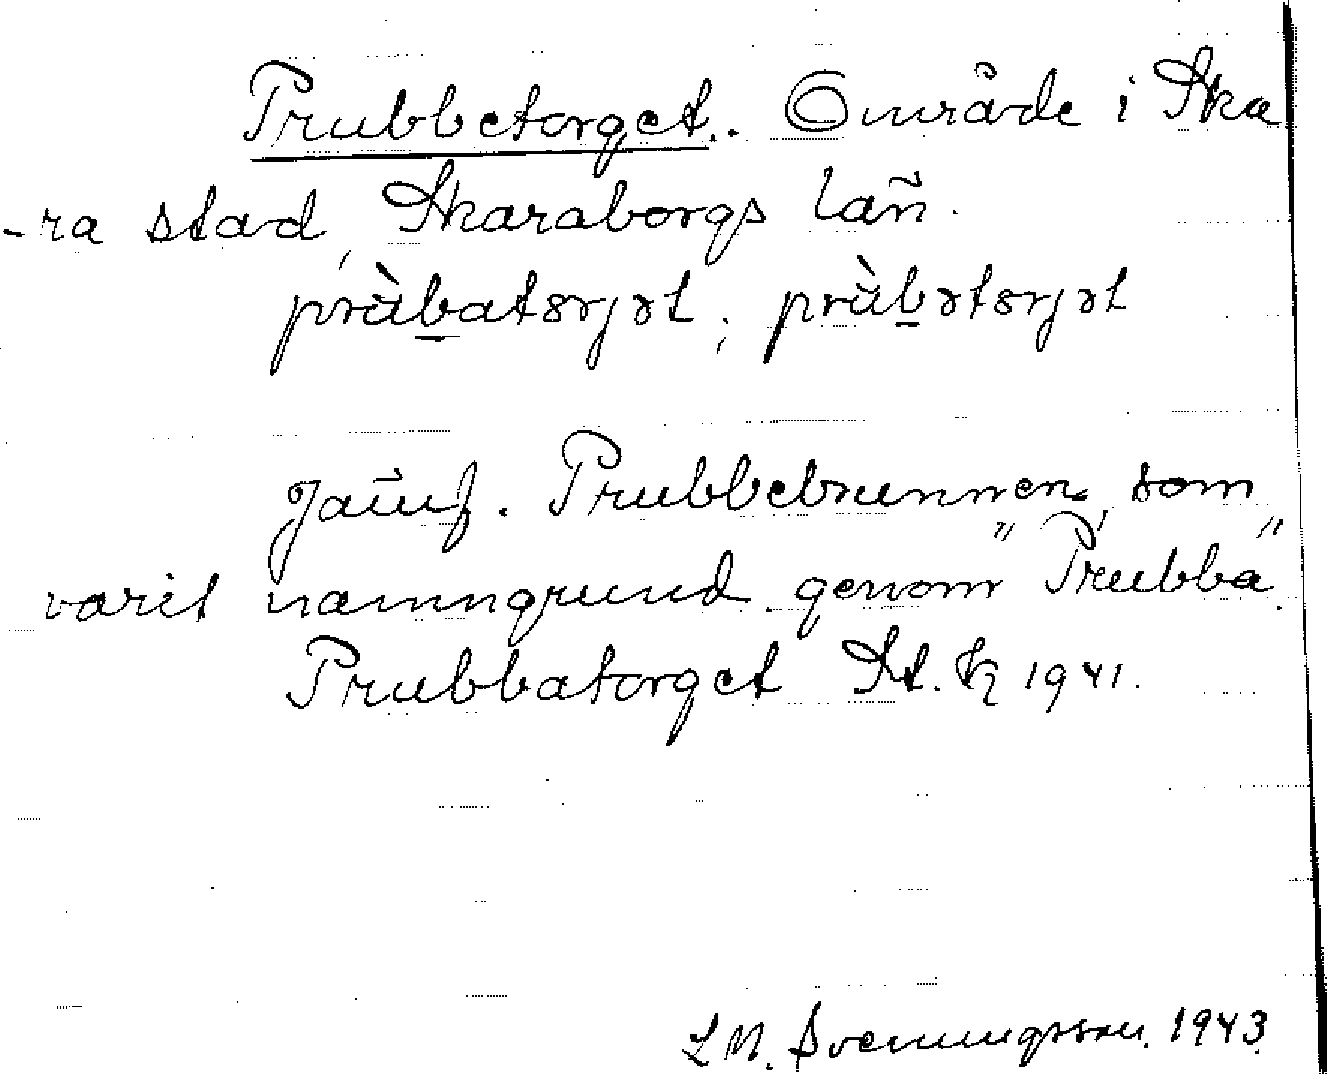 Prubbetorget. Område i Ska
-ra stad, Skaraborgs län.
pràbatsrjət; pràbətsrjət
Jämf. Prubbebrunnen, som
varit namngrund genom "Prubba".
Prubbatorget St. K 1941.
L M. Svenungsson. 1943.